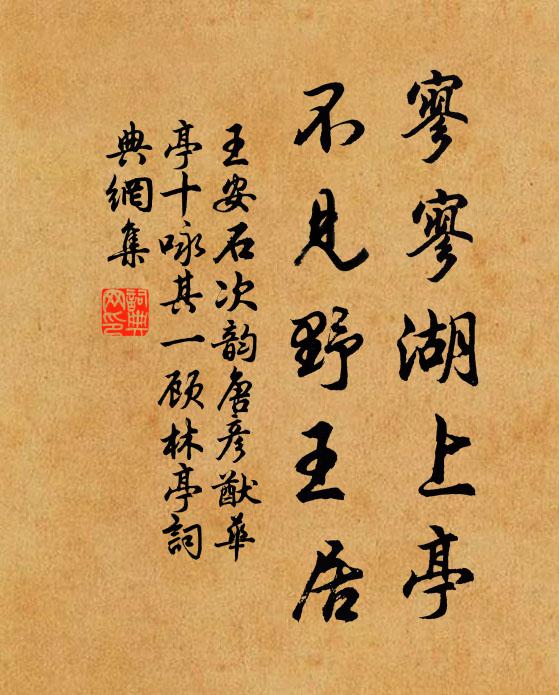 寥寥湖上亭
不見野王居
王安石次韵唐彦猷華
亭十咏其一顾林亭詞
典網集
詞典网印